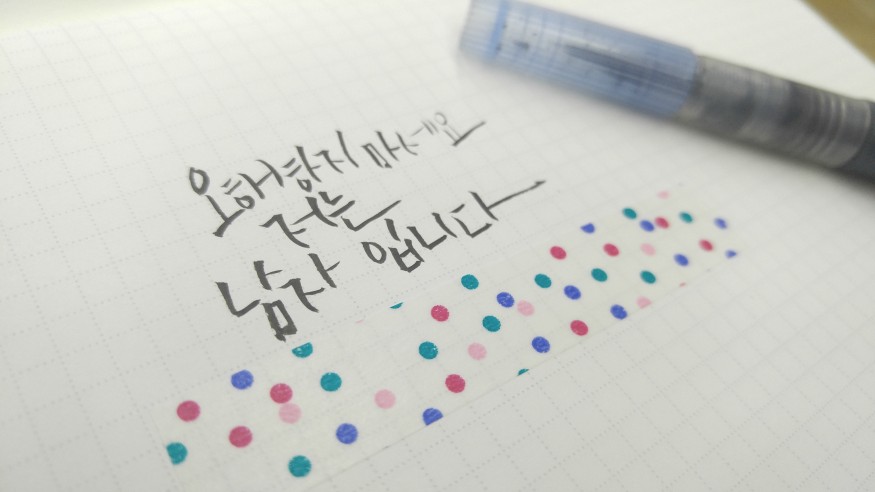 오해하지 마세요
저는
남자 입니다